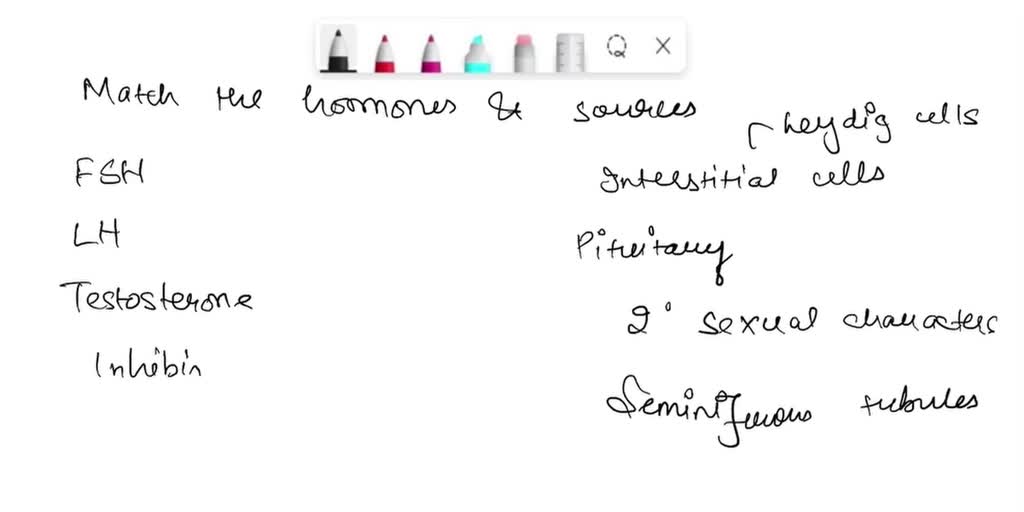 Match the hormones & sources
Leydig cells
FSH
Interstitial cells
LH
Pituitary
Testosterone
2° sexual characters
Inhibin
Seminiferous tubules